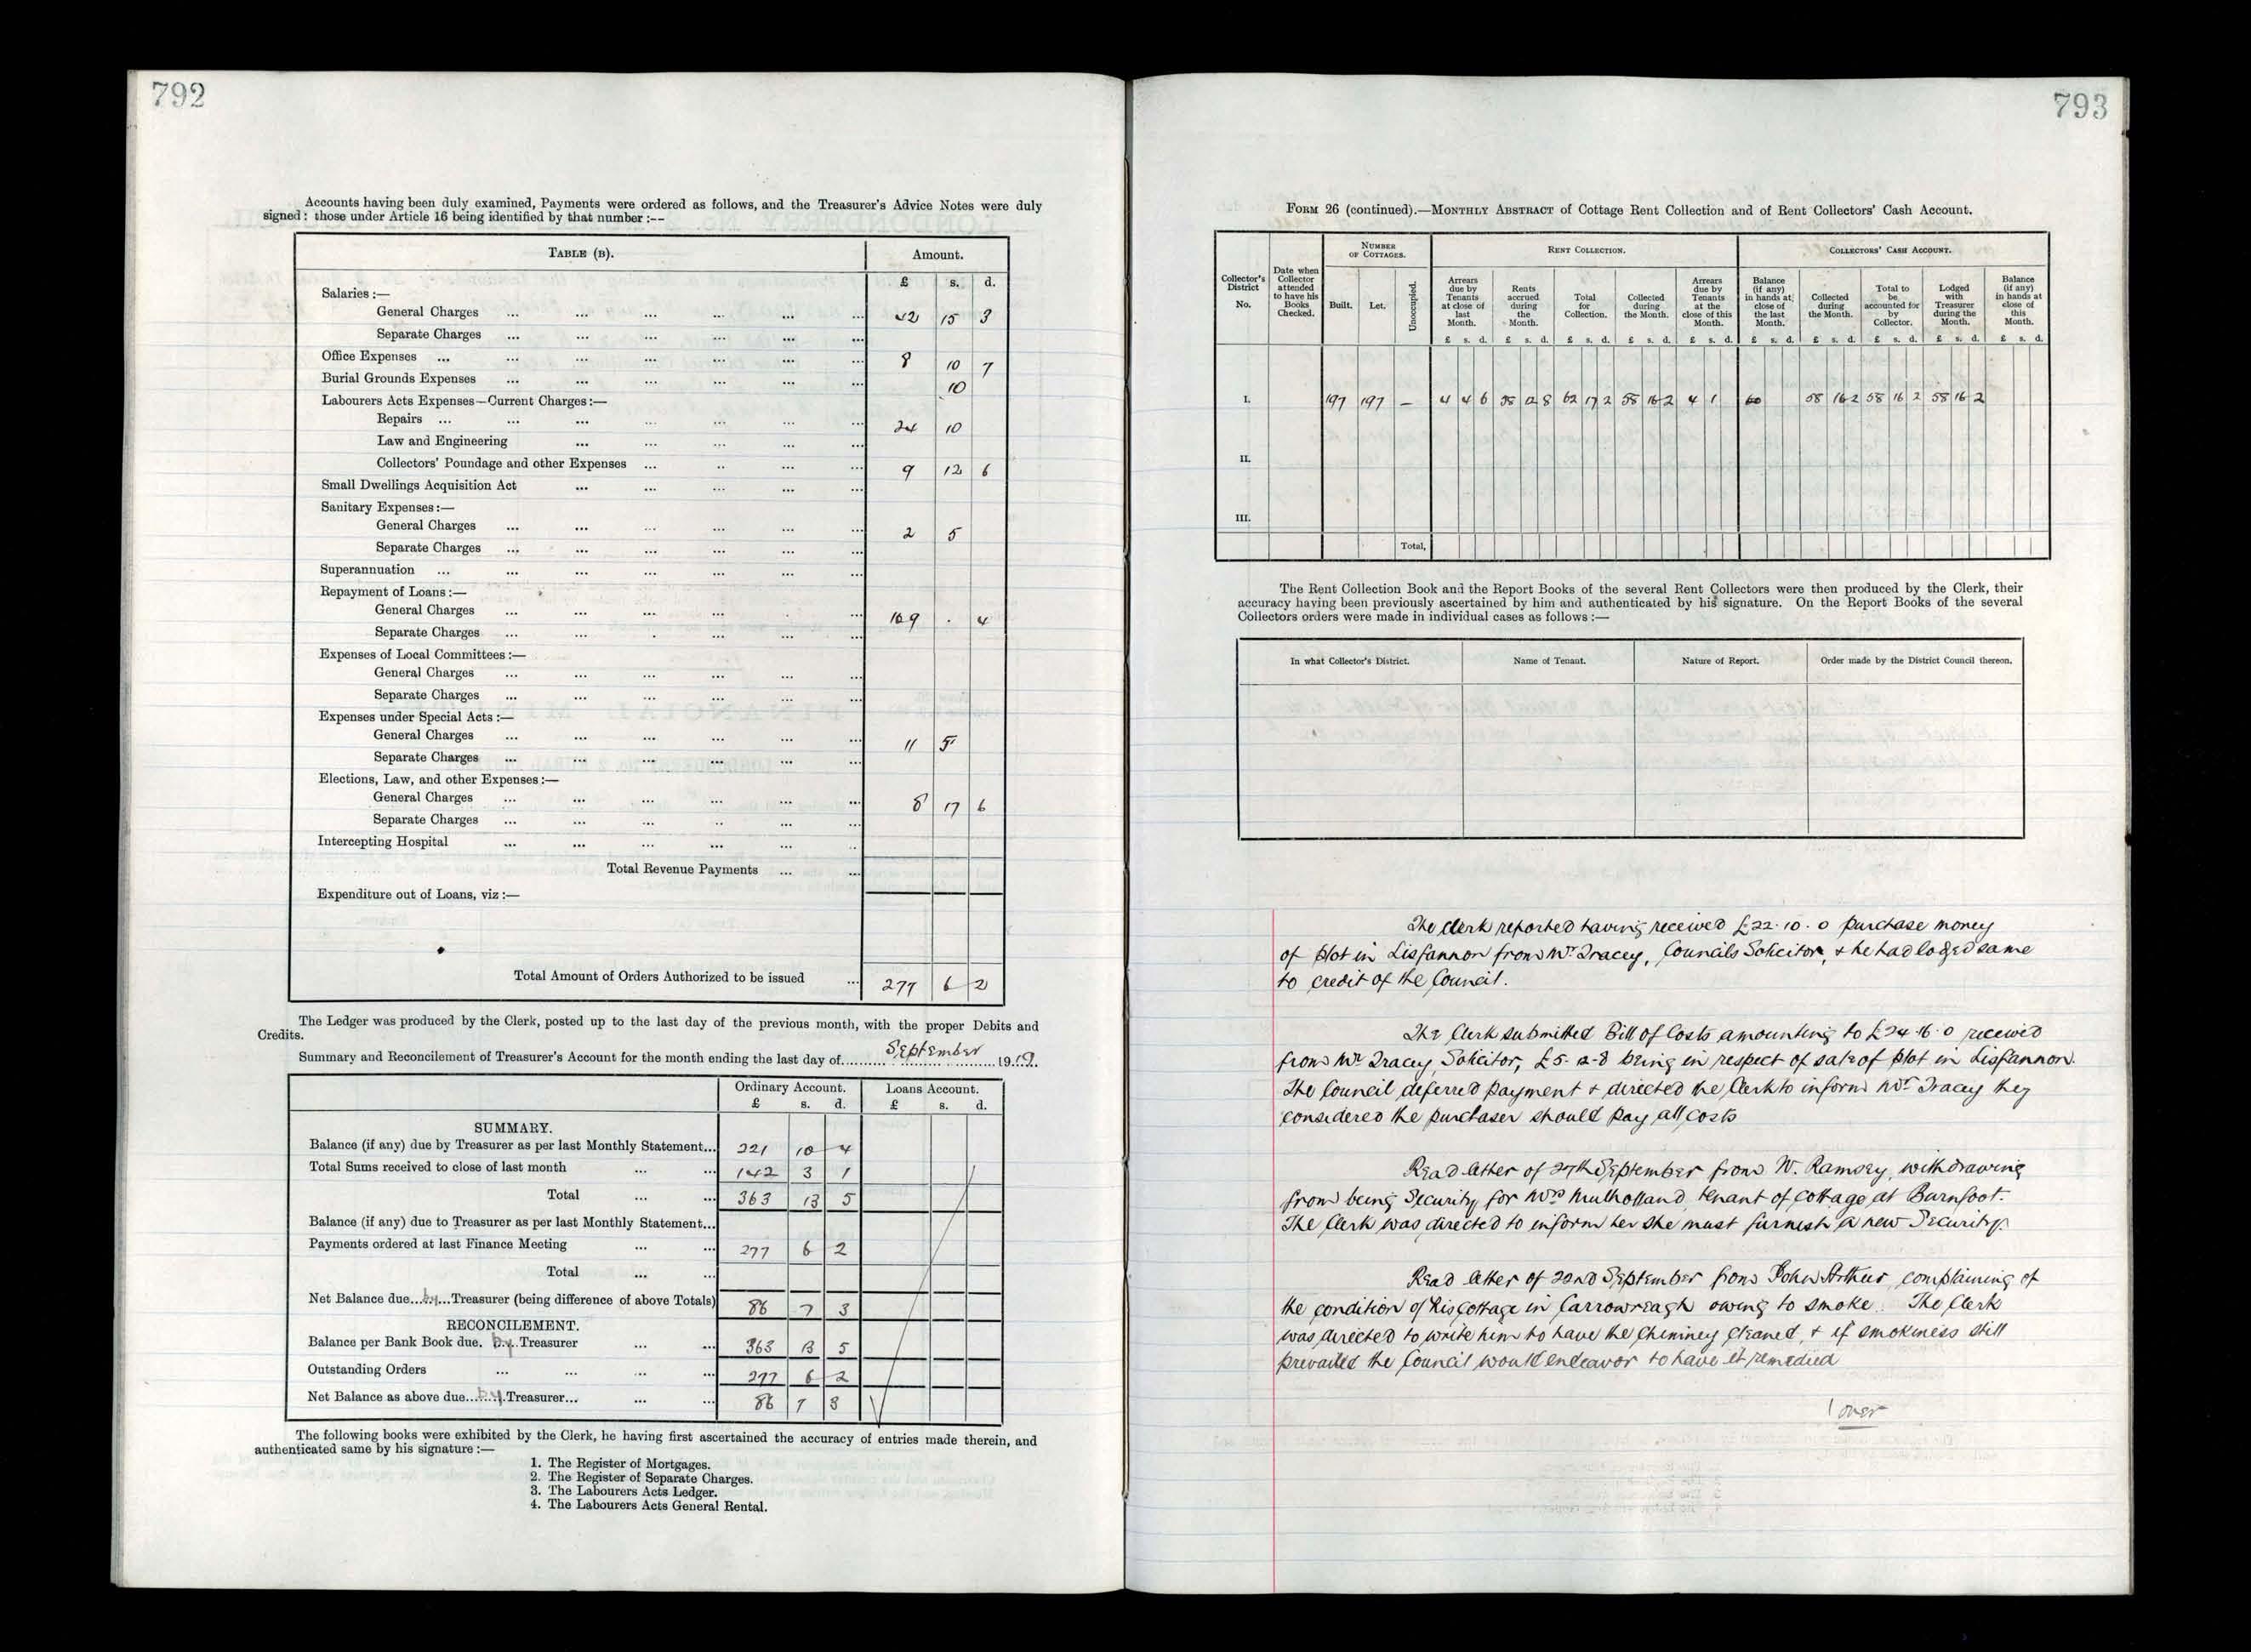 792
Accounts having been duly examined, Payments were ordered as follows, and the Treasurer's Advice Notes were duly
signed: those under Article 16 being identified by that number :--
TABLE (B). Amount.
£ s. d.
Salaries :—
General Charges ... ... ... ... ... ... 42 15 3
Separate Charges ... ... ... ... ... ...
Office Expenses ... ... ... ... ... ... ... 8 10 7
Burial Grounds Expenses ... ... ... ... ... ... 10
Labourers Acts Expenses—Current Charges :—
Repairs ... ... ... ... ... ... ... 24 10
Law and Engineering ... ... ... ... ...
Collectors' Poundage and other Expenses ... ... ... ... 9 12 6
Small Dwellings Acquisition Act ... ... ... ... ...
Sanitary Expenses :—
General Charges ... ... ... ... ... ... 2 5
Separate Charges ... ... ... ... ... ...
Superannuation ... ... ... ... ... ... ...
Repayment of Loans :—
General Charges ... ... ... ... ... ... 169 . 4
Separate Charges ... ... ... ... ... ...
Expenses of Local Committees :—
General Charges ... ... ... ... ... ...
Separate Charges ... ... ... ... ... ...
Expenses under Special Acts :—
General Charges ... ... ... ... ... ... 11 5
Separate Charges ... ... ... ... ... ...
Elections, Law, and other Expenses :—
General Charges ... ... ... ... ... ... 8 17 6
Separate Charges ... ... ... ... ... ...
Intercepting Hospital ... ... ... ... ... ...
Total Revenue Payments ... ...
Expenditure out of Loans, viz :—
Total Amount of Orders Authorized to be issued ... 277 6 2
The Ledger was produced by the Clerk, posted up to the last day of the previous month, with the proper Debits and
Credits.
Summary and Reconcilement of Treasurer's Account for the month ending the last day of September 1919.
Ordinary Account. Loans Account.
£ s. d. £ s. d.
SUMMARY.
Balance (if any) due by Treasurer as per last Monthly Statement... 221 10 4
Total Sums received to close of last month ... ... 142 3 1
Total ... ... 363 13 5
Balance (if any) due to Treasurer as per last Monthly Statement...
Payments ordered at last Finance Meeting ... ... 277 6 2
Total ... ...
Net Balance due...by...Treasurer (being difference of above Totals) 86 7 3
RECONCILEMENT.
Balance per Bank Book due. by Treasurer ... ... 363 13 5
Outstanding Orders ... ... ... ... 277 6 2
Net Balance as above due...by.Treasurer... ... ... 86 7 3
The following books were exhibited by the Clerk, he having first ascertained the accuracy of entries made therein, and
authenticated same by his signature :—
1. The Register of Mortgages.
2. The Register of Separate Charges.
3. The Labourers Acts Ledger.
4. The Labourers Acts General Rental.
793
FORM 26 (continued).—MONTHLY ABSTRACT of Cottage Rent Collection and of Rent Collectors' Cash Account.
Collector's District No.
Date when Collector attended to have his Books Checked.
NUMBER OF COTTAGES.
Built. Let. Unoccupied.
RENT COLLECTION.
Arrears due by Tenants at close of last Month.
Rents accrued during the Month.
Total for Collection.
Collected during the Month.
Arrears due by Tenants at the close of this Month.
COLLECTORS' CASH ACCOUNT.
Balance (if any) in hands at close of the last Month.
Collected during the Month.
Total to be accounted for by Collector.
Lodged with Treasurer during the Month.
Balance (if any) in hands at close of this Month.
£ s. d. £ s. d. £ s. d. £ s. d. £ s. d. £ s. d. £ s. d. £ s. d. £ s. d. £ s. d.
I. 197 197 — 4 4 6 58 12 8 62 17 2 58 16 2 4 1 58 16 2 58 16 2 58 16 2
II.
III.
Total,
The Rent Collection Book and the Report Books of the several Rent Collectors were then produced by the Clerk, their
accuracy having been previously ascertained by him and authenticated by his signature. On the Report Books of the several
Collectors orders were made in individual cases as follows :—
In what Collector's District. Name of Tenant. Nature of Report. Order made by the District Council thereon.
The Clerk reported having received £22.10.0 purchase money
of plot in Lisfannon from Mr Tracey, Councils Solicitor, & he had lodged same
to credit of the Council.
The Clerk submitted Bill of Costs amounting to £24.16.0 received
from Mr Tracey, Solicitor, £5-12-8 being in respect of sale of plot in Lisfannon.
The Council deferred payment & directed the Clerk to inform Mr Tracey they
considered the purchaser should pay all costs
Read letter of 27th September from W. Ramsey, withdrawing
from being Security for Mrs Mulholland, tenant of cottage at Burnfoot.
The Clerk was directed to inform her she must furnish a new Security.
Read letter of 22nd September from John Arthur, complaining of
the condition of his cottage in Carrowreagh owing to smoke. The Clerk
was directed to write him to have the Chimney cleaned, & if smokiness still
prevailed the Council would endeavor to have it remedied
over